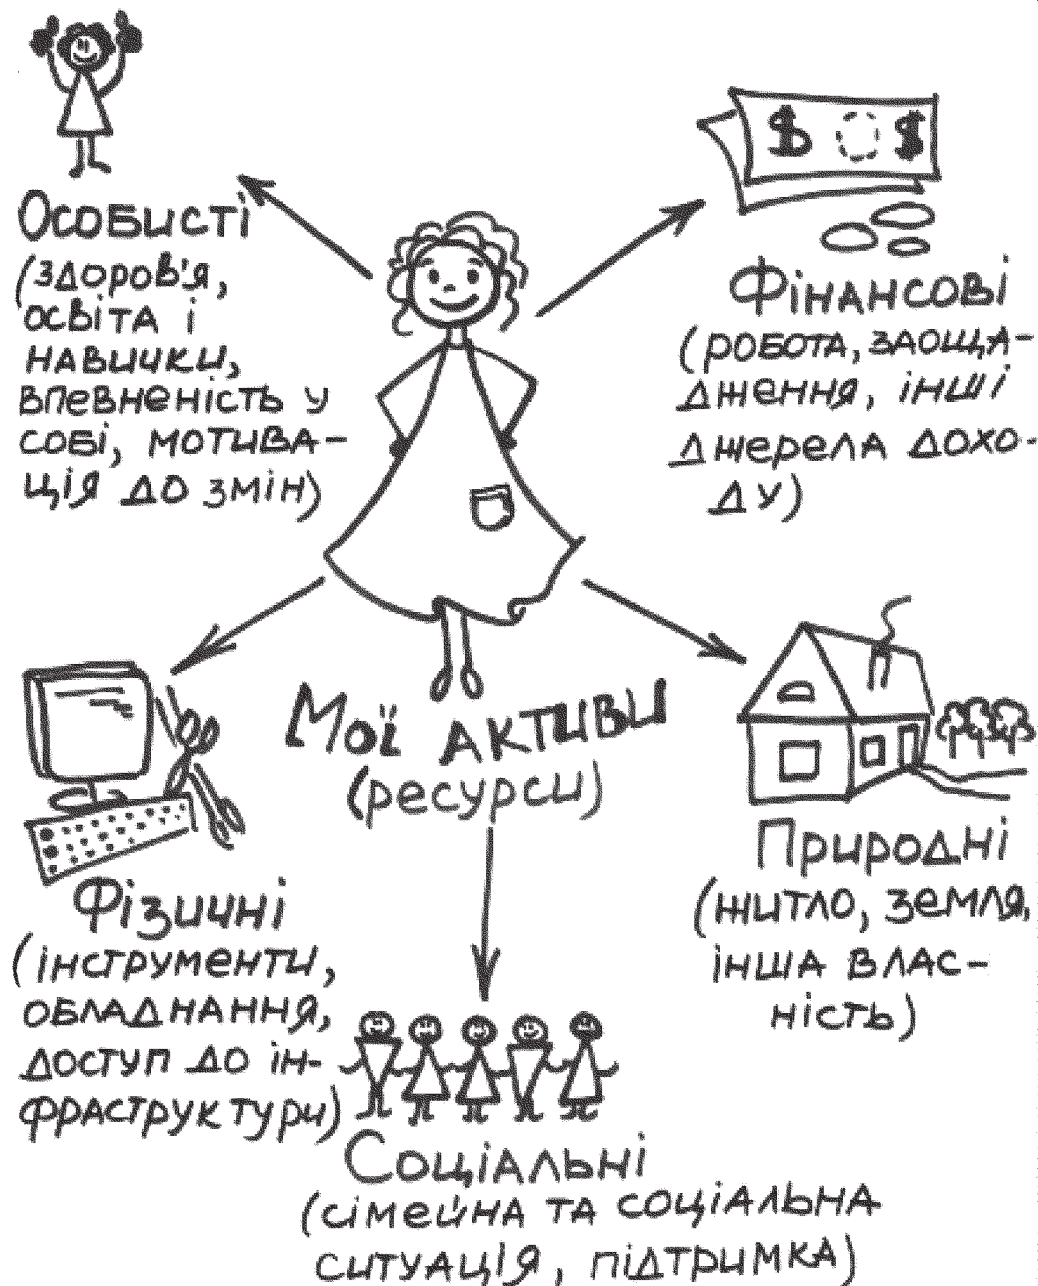 Особисті
(здоров'я,
освіта і
навички,
впевненість у
собі, мотива-
ція до змін)
$ $
Фінансові
(робота, заоща-
дження, інші
джерела дохо-
ду)
Мої активи
(ресурси)
Фізичні
(інструменти,
обладнання,
доступ до ін-
фраструктури)
Природні
(житло, земля,
інша влас-
ність)
Соціальні
(сімейна та соціальна
ситуація, підтримка)